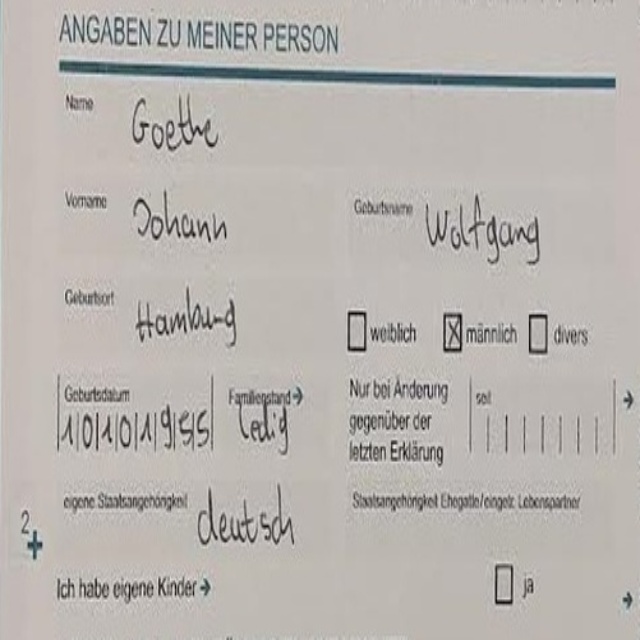 ANGABEN ZU MEINER PERSON
Name
Goethe
Vorname
Johann
Geburtsname
Wolfgang
Geburtsort
Hamburg
weiblich
männlich
divers
Geburtsdatum
10101955
Familienstand →
ledig
Nur bei Änderung
gegenüber der
letzten Erklärung
seit
→
eigene Staatsangehörigkeit
deutsch
Staatsangehörigkeit Ehegatte/eingetr. Lebenspartner
2
Ich habe eigene Kinder →
ja
→